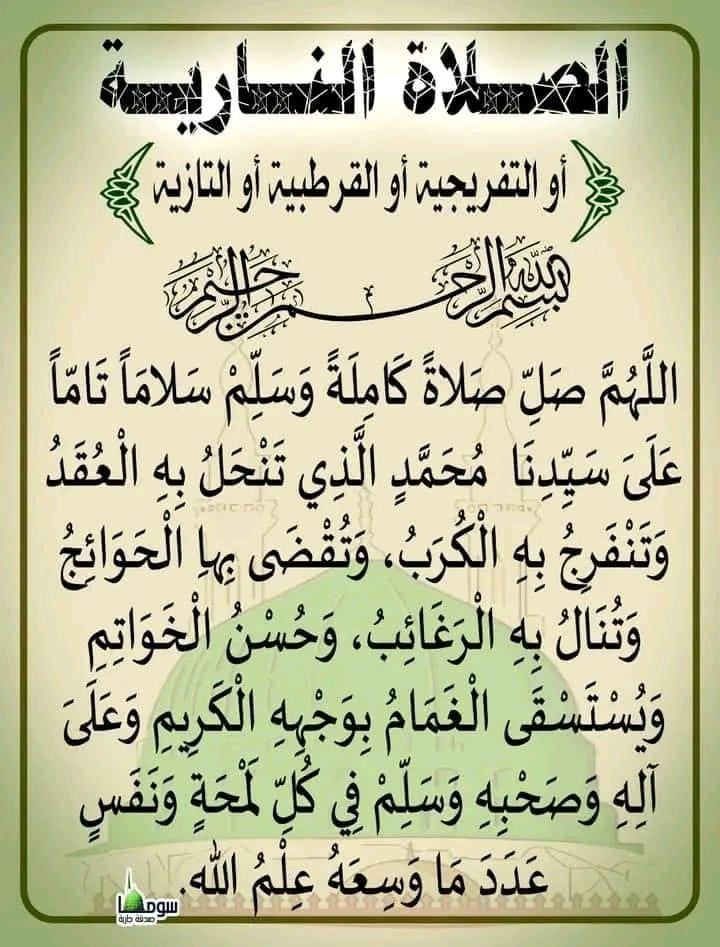 الصلاة النارية
أو التفريجية أو القرطبية أو التازية
بسم الله الرحمن الرحيم
اللَّهُمَّ صَلِّ صَلاةً كَامِلَةً وَسَلِّمْ سَلامَاً تَامّاً
عَلَىَ سَيِّدِنَا مُحَمَّدٍ الَّذِي تَنْحَلُ بِهِ الْعُقَدُ
وَتَنْفَرِجُ بِهِ الْكُرَبُ، وَتُقْضَى بِهاِ الْحَوَائِجُ
وَتُنَالُ بِهِ الْرَغَائِبُ، وَحُسْنُ الْخَوَاتِمِ
وَيُسْتَسْقَى الْغَمَامُ بِوَجْهِهِ الْكَرِيمِ وَعَلَىَ
آلِهِ وَصَحْبِهِ وَسَلِّمْ فِي كُلِّ لَمْحَةٍ وَنَفَسٍ
عَدَدَ مَا وَسِعَهُ عِلْمُ الله.
صدقة جارية